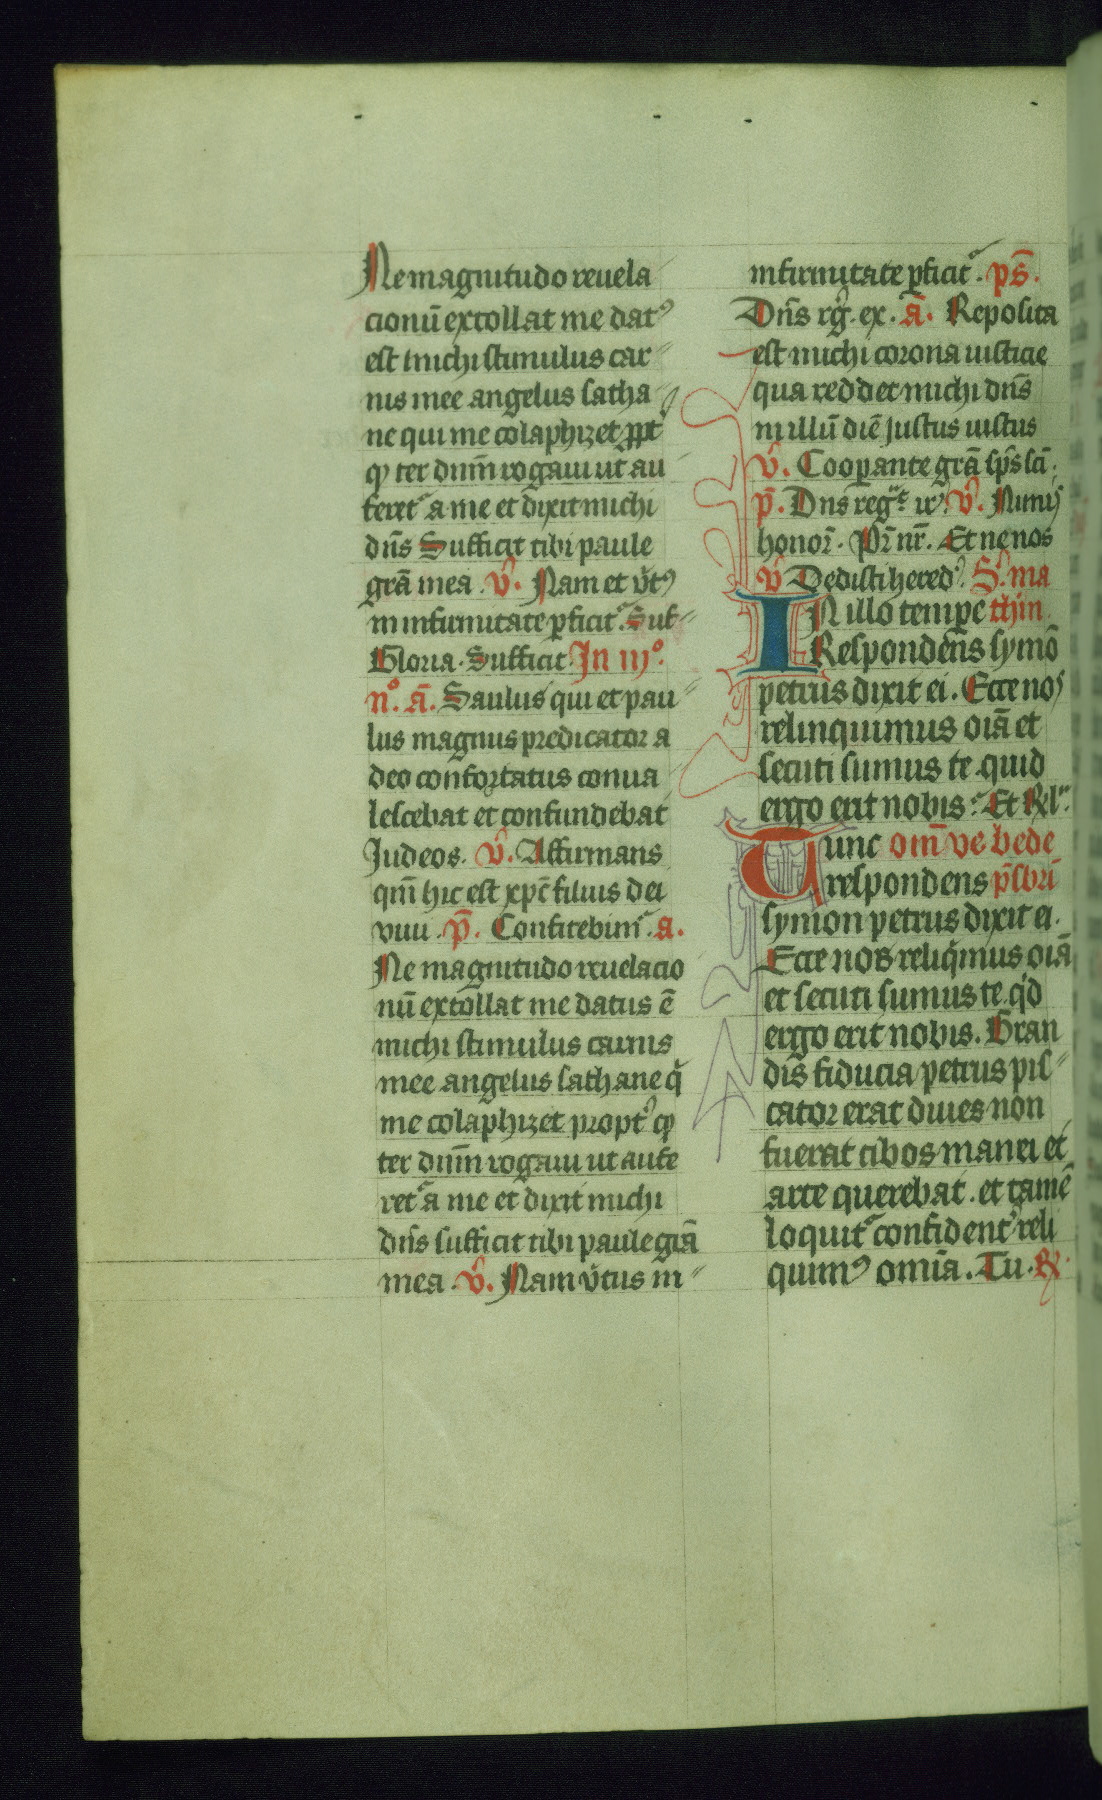 Ne magnitudo reuela
cionū extollat me datꝰ
est michi stimulus car
nis mee angelus satha
ne qui me colaphizet ꝓpt̄
qꝫ ter dnm̄ rogaui ut au
feret᷑ a me et dixit michi
dn̄s Sufficit tibi paule
gr̄a mea . v̄. Nam et v̄tꝰ
in infirmitate ꝑficit᷑. Suf
Gloria . Sufficit . In iijº.
n.º ā. Saulus qui et pau
lus magnus predicator a
deo confortatus conua
lescebat et confundebat
Judeos . v̄. Affirmans
qm̄ hic est xp̄c filius dei
viui . p̄. Confitebim᷑. a.
Ne magnitudo reuelacio
nū extollat me datus ē
michi stimulus carnis
mee angelus sathane q̄
me colaphizet propt̄ qꝫ
ter dnm̄ rogaui ut aufe
ret᷑ a me et dixit michi
dn̄s sufficit tibi paule gr̄a
mea . v̄. Nam v̄tus in
infirmitate ꝑficit᷑. ps̄.
Dn̄s rḡ. ex . ā. Reposita
est michi corona iusticie
qua reddet michi dn̄s
in illū diē justus iustus
v̄. Cooꝑante gr̄a sp̄s sc̄i.
p̄. Dns regͣt ir. v̄. Nimiꝰ
honor̄. Pr̄ nr̄. Et ne nos
v̄ Dedisti hered. S. ma
IN illo temꝑe thin
Respondens symō
petrus dixit ei . Ecce nos
relinquimus oīa et
secuti sumus te . quid
ergo erit nobis. Et Rel.
Tunc om̄ ve bede
respondens p̄sbri
symon petrus dixit ei .
Ecce nos reliq̄mus oīa
et secuti sumus te . q̄d
ergo erit nobis . Gran
dis fiducia petrus pis
cator erat diues non
fuerat cibos manu et
arte querebat . et tamē
loquit᷑ confident̄ reli
quimꝰ omīa . Tu . ꝶ